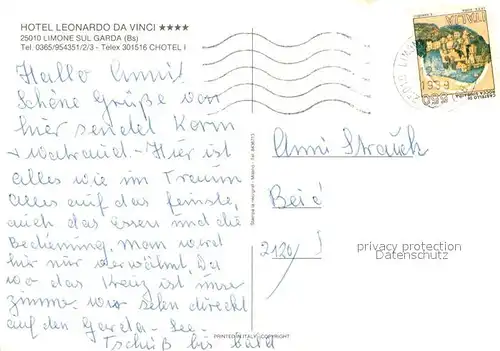 HOTEL LEONARDO DA VINCI ★★★★
25010 LIMONE SUL GARDA (Bs)
Tel. 0365/954351/2/3 - Telex 301516 CHOTEL I
Hallo Anni!
Schöne Grüße von
hier sendet Karin
+ Waltraud. - Hier ist
alles wie im Traum
alles auf das feinste,
auch das essen und die
Bedienung, man wird
hir nur verwöhnt, Da
wo das Kreuz ist unser
zimmer. wir sehen direckt
auf den Garda-See-
Tschüß bis bald
Anni Strauch
2120/
ITALIA
650
25010 LIMONE
PRINTED IN ITALY - COPYRIGHT
privacy protection
Datenschutz